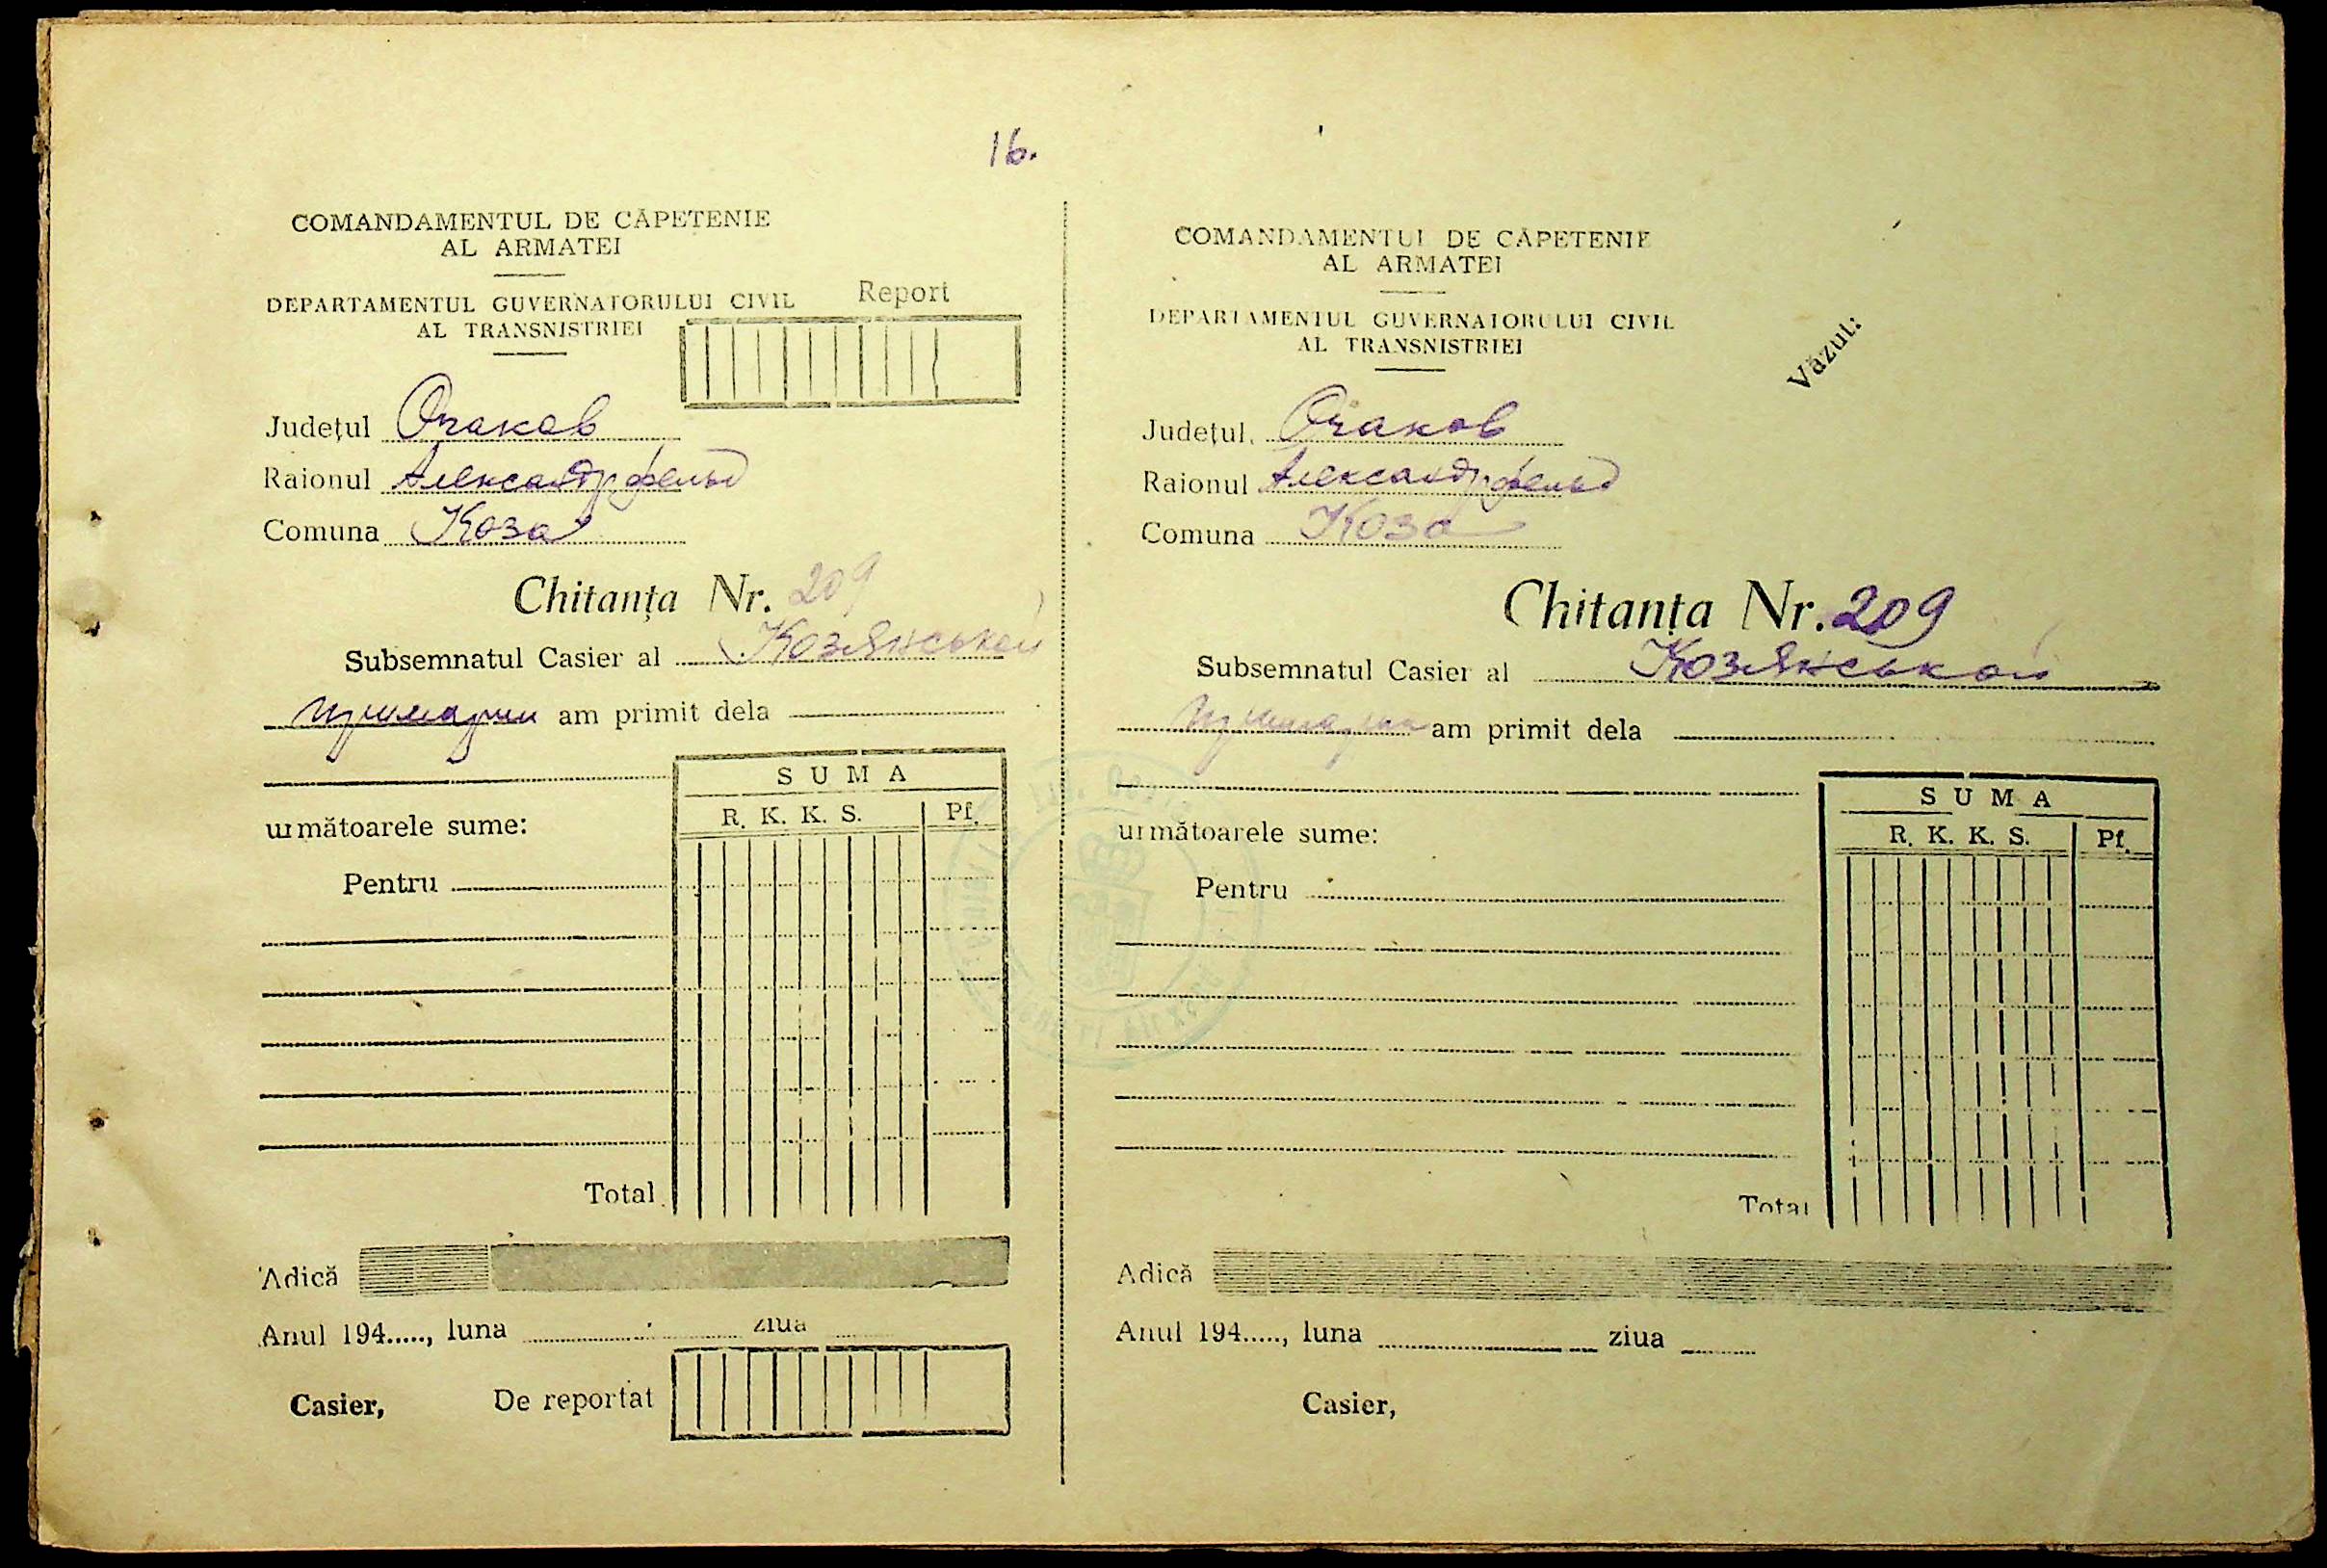 16.
COMANDAMENTUL DE CĂPETENIE
AL ARMATEI
DEPARTAMENTUL GUVERNATORULUI CIVIL
AL TRANSNISTRIEI
Report
Județul Очаков
Raionul Александрфельд
Comuna Коза
Chitanța Nr. 209
Subsemnatul Casier al Козянськой
примарии am primit dela
SUMA
R. K. K. S. Pf.
următoarele sume:
Pentru
Total
Adică
Anul 194....., luna ziua
Casier, De reportat
COMANDAMENTUL DE CĂPETENIE
AL ARMATEI
DEPARTAMENTUL GUVERNATORULUI CIVIL
AL TRANSNISTRIEI
Văzut:
Județul Очаков
Raionul Александрфельд
Comuna Коза
Chitanța Nr. 209
Subsemnatul Casier al Козянськой
примарии am primit dela
SUMA
R. K. K. S. Pf.
următoarele sume:
Pentru
Total
Adică
Anul 194....., luna ziua
Casier,